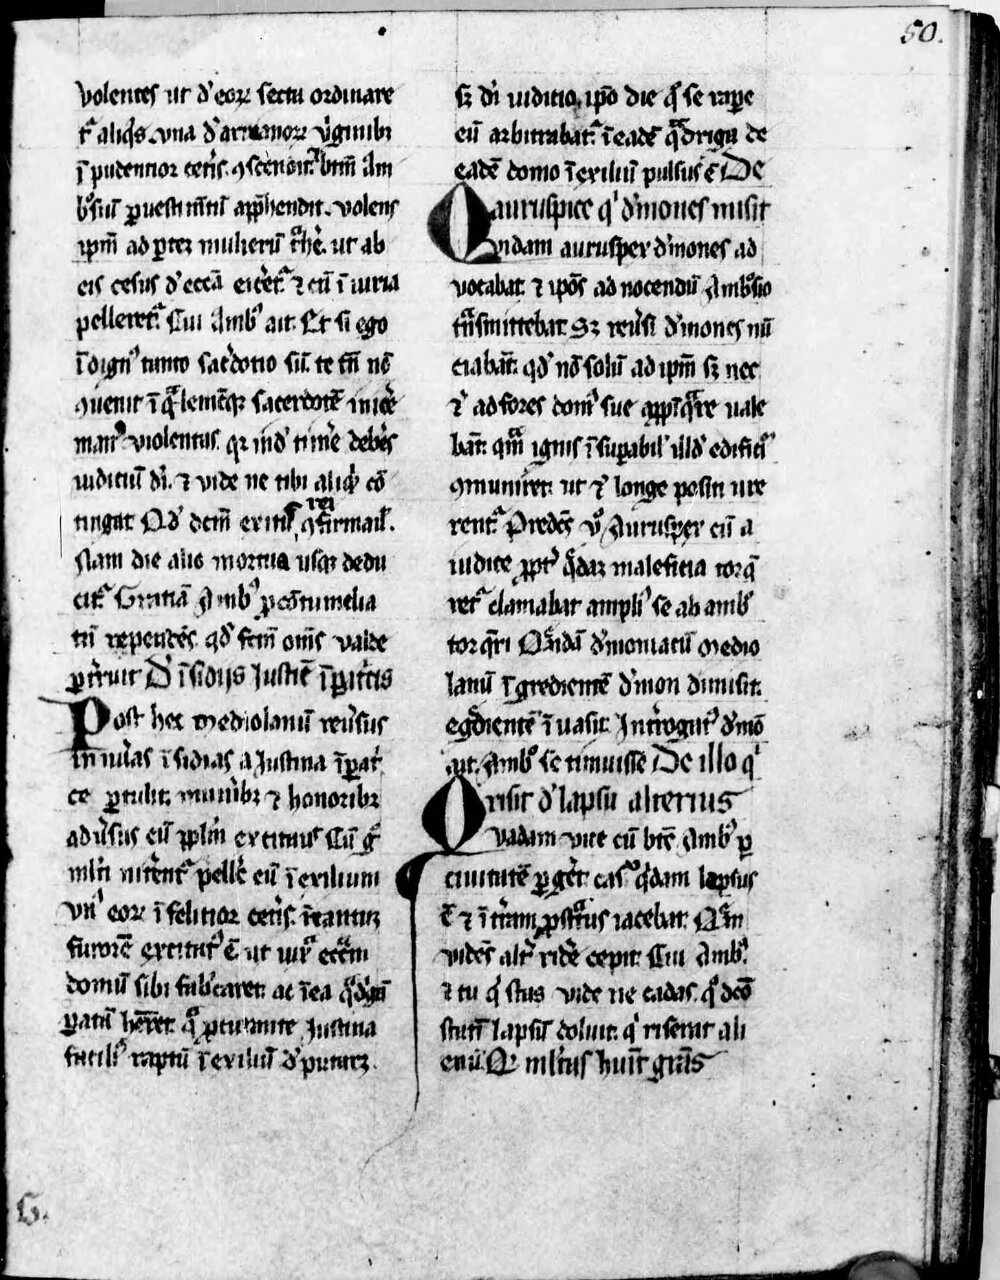 50.
volentes ut d' eoꝝ secta ordinare
t᷑ aliq̇s. vna d' arrianoꝝ v̓ginibꝫ
ı̄pudentior cet̓is. ꝯscendit t̓bm̄ Am
b᷒siū ꝑ uestim̄tū app̄hendit. volens
ipm̄ ad ꝑteꝫ mulierū t̓he᷑. ut ab
eis cesus d' ecc̄a eiceret᷑ ⁊ cū ı̄iuria
pelleret᷑. Cui Amb᷒ ait. Et si ego
ı̄dign᷒ tanto sac̓dotio sū. te tn̄ nō
ꝯuenit ı̄ q̄lemcūqꝫ sacerdotē inice̓
man᷒ violentas. qꝛ ind' time̓ deb̓es
iudiciū dı̄. ⁊ vide ne tibi aliq̇d cō
tingat Qd' dcm̄ exit᷒ rei ꝯfirmauı̄.
Nam die alio mortua usqꝫ dedu
cit᷑ Gratiā Amb᷒ ꝓ cōtumelia
tū rependēs. qd' fem̄ om̄s valde
ꝑt̓ruit D' ı̄sidijs Justie᷑ ı̄ꝑatͥcis
Post hec mediolanū reu̓sus
in nu̓as ı̄sidias a Justina ı̄ꝑatͥ
ce ꝑtulit. mun̓ibꝫ ⁊ honoribꝫ
adu̓sus eū ppl̄m excitant᷒ Cū g̊
ml̓ti nit̓ent᷑ pelle̓ eū ı̄ exilium
vn᷒ eoꝝ ı̄felicior cet̓is. ı̄tantuꝫ
furorē excitat᷒ ē ut iux̄ ecc̄am
domū sibi fab̓caret. ac ı̄ ea q̄d'gā
ꝑatā h̄ret. q̊ ꝓcurante Justina
facili᷒ raptū ı̄ exiliū d'putaꝫ.
sꝫ dı̄ iuditio. ipō die q᷒ se rape̓
eū arbitrabat᷑. ı̄ eadē q̄driga de
eadē domo ı̄ exiliū pulsus ē De
auruspice qͥ d'mones misit
Quidam aurusper d'mones ad
vocabat. ⁊ ipōs ad nocendū Amb᷒sio
tn̄smittebat. Sꝫ reu̓si d'mones nū
ciabāt. qd' nō solū ad ipm̄ sꝫ nec
⁊ ad fores dom᷒ sue app̄ı̄q̄re uale
bāt. qm̄ ignis ı̄suꝑabil᷒ ill'd edificiū
ꝯmuniret. ut ⁊ longe positi ure
rent᷑ Predc̄s v᷒ Aurusper cū a
iudice ꝓpt̓ q̄daꝫ maleficia torq̄
ret᷑ clamabat ampli᷒ se ab amb᷒
torq̄ri Quēdā d'moniacū medio
lanū ı̄gredientē d'mon dimisit.
egrediente ı̄uasit. Int̓rogat᷒ d'mō
ait. Amb᷒ se timuisse De illo qͥ
risit d' lapsu alterius
Quadam vice cū bt̄s Amb᷒ ꝑ
ciuitatē ꝑge̓t. casu q̇dam lapsus
ē ⁊ ı̄ t̓ram ꝓstratus iacebat. Quē
vidēs alt̓ ride̓ cepit. Cui Amb᷒.
⁊ tu qͥ stas vide ne cadas. q᷒ dcō
statī lapsū doluit. qͥ riserat ali
enū. Qꝛ ml̓tas huit gr̄as
G.